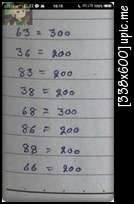 16:15
63 = 300
36 = 200
83 = 200
38 = 200
68 = 300
86 = 200
88 = 200
66 = 200
[338x600] upic.me